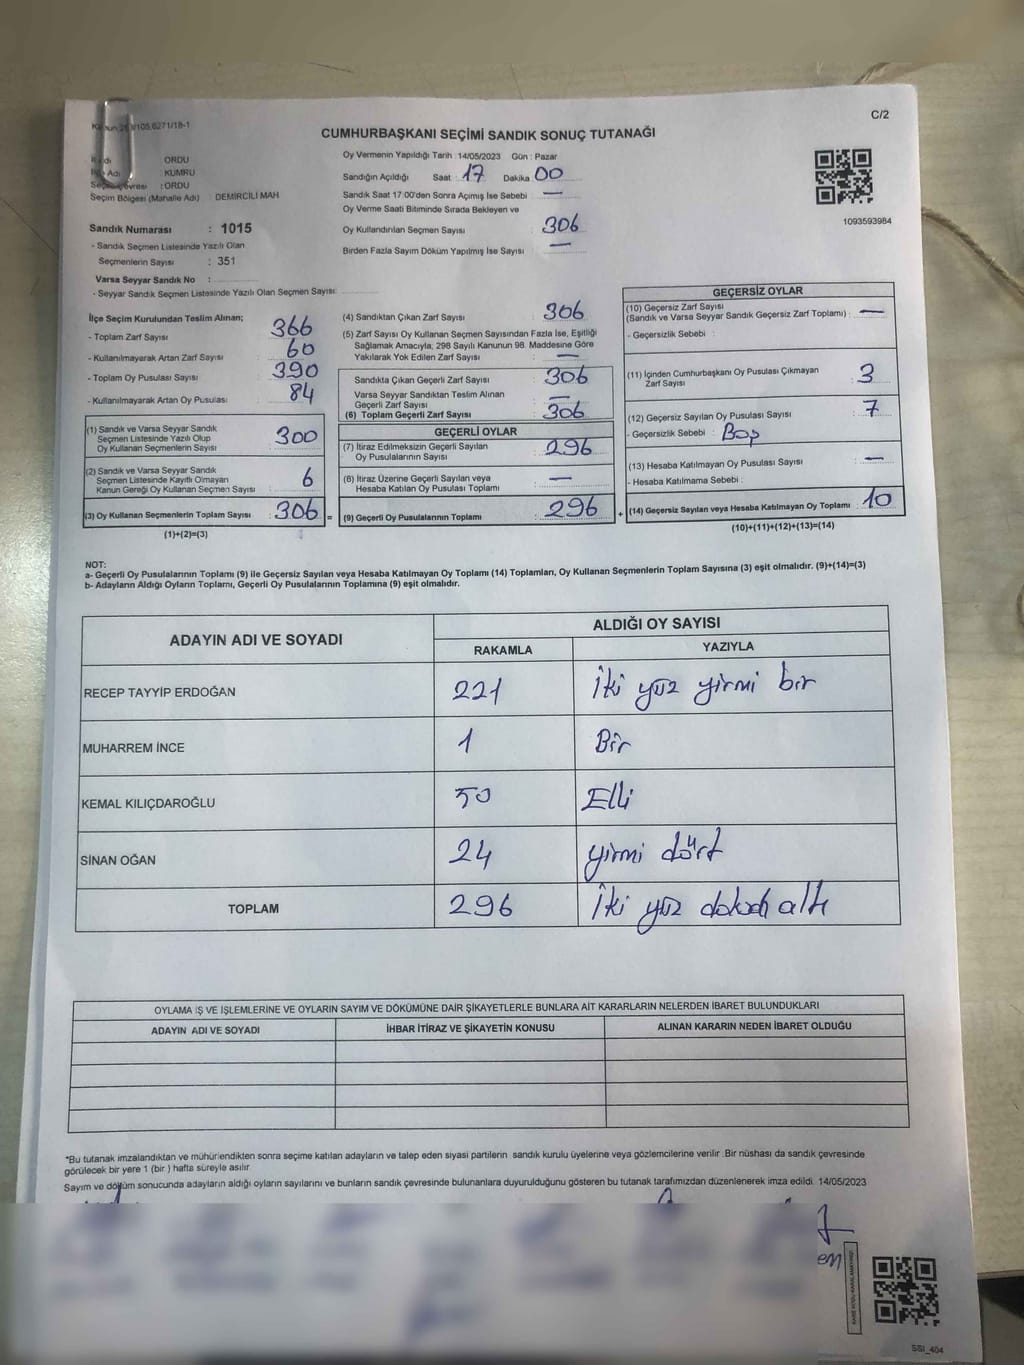 C/2
CUMHURBAŞKANI SEÇİMİ SANDIK SONUÇ TUTANAĞI
ORDU
KUMRU
: ORDU
Seçim Bölgesi (Mahalle Adı) DEMİRCİLİ MAH
Sandık Numarası : 1015
- Sandık Seçmen Listesinde Yazılı Olan
Seçmenlerin Sayısı : 351
Varsa Seyyar Sandık No :
- Seyyar Sandık Seçmen Listesinde Yazılı Olan Seçmen Sayısı:
Oy Vermenin Yapıldığı Tarih :14/05/2023 Gün : Pazar
Sandığın Açıldığı Saat : 17 Dakika : 00
Sandık Saat 17:00'den Sonra Açımış İse Sebebi : —
Oy Verme Saati Bitiminde Sırada Bekleyen ve
Oy Kullandırılan Seçmen Sayısı : 306
Birden Fazla Sayım Döküm Yapılmış İse Sayısı : —
1093593984
İlçe Seçim Kurulundan Teslim Alınan;
- Toplam Zarf Sayısı : 366
- Kullanılmayarak Artan Zarf Sayısı : 60
- Toplam Oy Pusulası Sayısı : 390
- Kullanılmayarak Artan Oy Pusulası : 84
(1) Sandık ve Varsa Seyyar Sandık
Seçmen Listesinde Yazılı Olup
Oy Kullanan Seçmenlerin Sayısı : 300
(2) Sandık ve Varsa Seyyar Sandık
Seçmen Listesinde Kayıtlı Olmayan
Kanun Gereği Oy Kullanan Seçmen Sayısı : 6
(3) Oy Kullanan Seçmenlerin Toplam Sayısı : 306 =
(1)+(2)=(3)
(4) Sandıktan Çıkan Zarf Sayısı : 306
(5) Zarf Sayısı Oy Kullanan Seçmen Sayısından Fazla İse, Eşitliği
Sağlamak Amacıyla; 298 Sayılı Kanunun 98. Maddesine Göre
Yakılarak Yok Edilen Zarf Sayısı : —
Sandıkta Çıkan Geçerli Zarf Sayısı : 306
Varsa Seyyar Sandıktan Teslim Alınan
Geçerli Zarf Sayısı : —
(6) Toplam Geçerli Zarf Sayısı : 306
GEÇERLİ OYLAR
(7) İtiraz Edilmeksizin Geçerli Sayılan
Oy Pusulalarının Sayısı : 296
(8) İtiraz Üzerine Geçerli Sayılan veya
Hesaba Katılan Oy Pusulası Toplamı : —
(9) Geçerli Oy Pusulalarının Toplamı : 296 +
GEÇERSİZ OYLAR
(10) Geçersiz Zarf Sayısı
(Sandık ve Varsa Seyyar Sandık Geçersiz Zarf Toplamı) : —
- Geçersizlik Sebebi :
(11) İçinden Cumhurbaşkanı Oy Pusulası Çıkmayan
Zarf Sayısı : 3
(12) Geçersiz Sayılan Oy Pusulası Sayısı : 7
- Geçersizlik Sebebi : Boş
(13) Hesaba Katılmayan Oy Pusulası Sayısı : —
- Hesaba Katılmama Sebebi :
(14) Geçersiz Sayılan veya Hesaba Katılmayan Oy Toplamı : 10
(10)+(11)+(12)+(13)=(14)
NOT:
a- Geçerli Oy Pusulalarının Toplamı (9) ile Geçersiz Sayılan veya Hesaba Katılmayan Oy Toplamı (14) Toplamları, Oy Kullanan Seçmenlerin Toplam Sayısına (3) eşit olmalıdır. (9)+(14)=(3)
b- Adayların Aldığı Oyların Toplamı, Geçerli Oy Pusulalarının Toplamına (9) eşit olmalıdır.
ADAYIN ADI VE SOYADI ALDIĞI OY SAYISI
RAKAMLA YAZIYLA
RECEP TAYYİP ERDOĞAN 221 İki yüz yirmi bir
MUHARREM İNCE 1 Bir
KEMAL KILIÇDAROĞLU 50 Elli
SİNAN OĞAN 24 yirmi dört
TOPLAM 296 İki yüz altı
OYLAMA İŞ VE İŞLEMLERİNE VE OYLARIN SAYIM VE DÖKÜMÜNE DAİR ŞİKAYETLERLE BUNLARA AİT KARARLARIN NELERDEN İBARET BULUNDUKLARI
ADAYIN ADI VE SOYADI İHBAR İTİRAZ VE ŞİKAYETİN KONUSU ALINAN KARARIN NEDEN İBARET OLDUĞU
*Bu tutanak imzalandıktan ve mühürlendikten sonra seçime katılan adayların ve talep eden siyasi partilerin sandık kurulu üyelerine veya gözlemcilerine verilir .Bir nüshası da sandık çevresinde
görülecek bir yere 1 (bir ) hafta süreyle asılır.
Sayım ve döküm sonucunda adayların aldığı oyların sayılarını ve bunların sandık çevresinde bulunanlara duyurulduğunu gösteren bu tutanak tarafımızdan düzenlenerek imza edildi. 14/05/2023
SSI_404